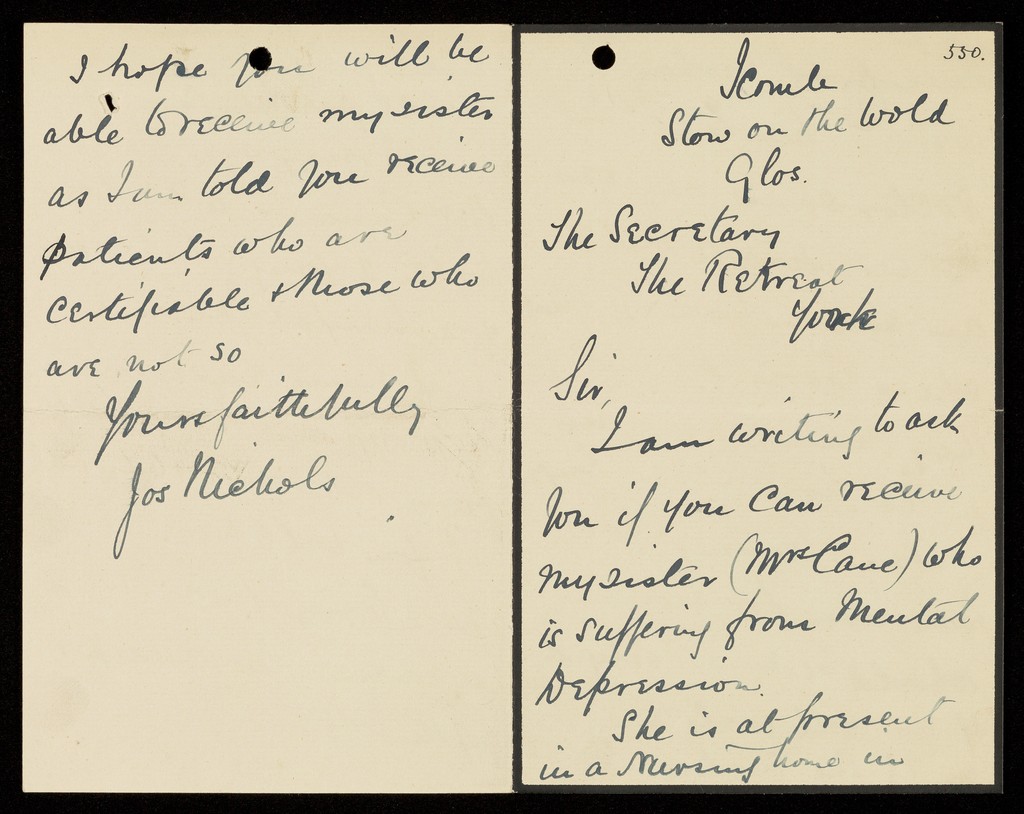 550.
Icomb
Stow on the Wold
Glos.
The Secretary
The Retreat
York
Sir,
I am writing to ask
you if you can receive
my sister (Mrs Cane) who
is suffering from Mental
Depression.
She is at present
in a Nursing home in
I hope you will be
able to receive my sister
as I am told you receive
patients who are
certifiable & those who
are not so
Yours faithfully
Jos Nichols